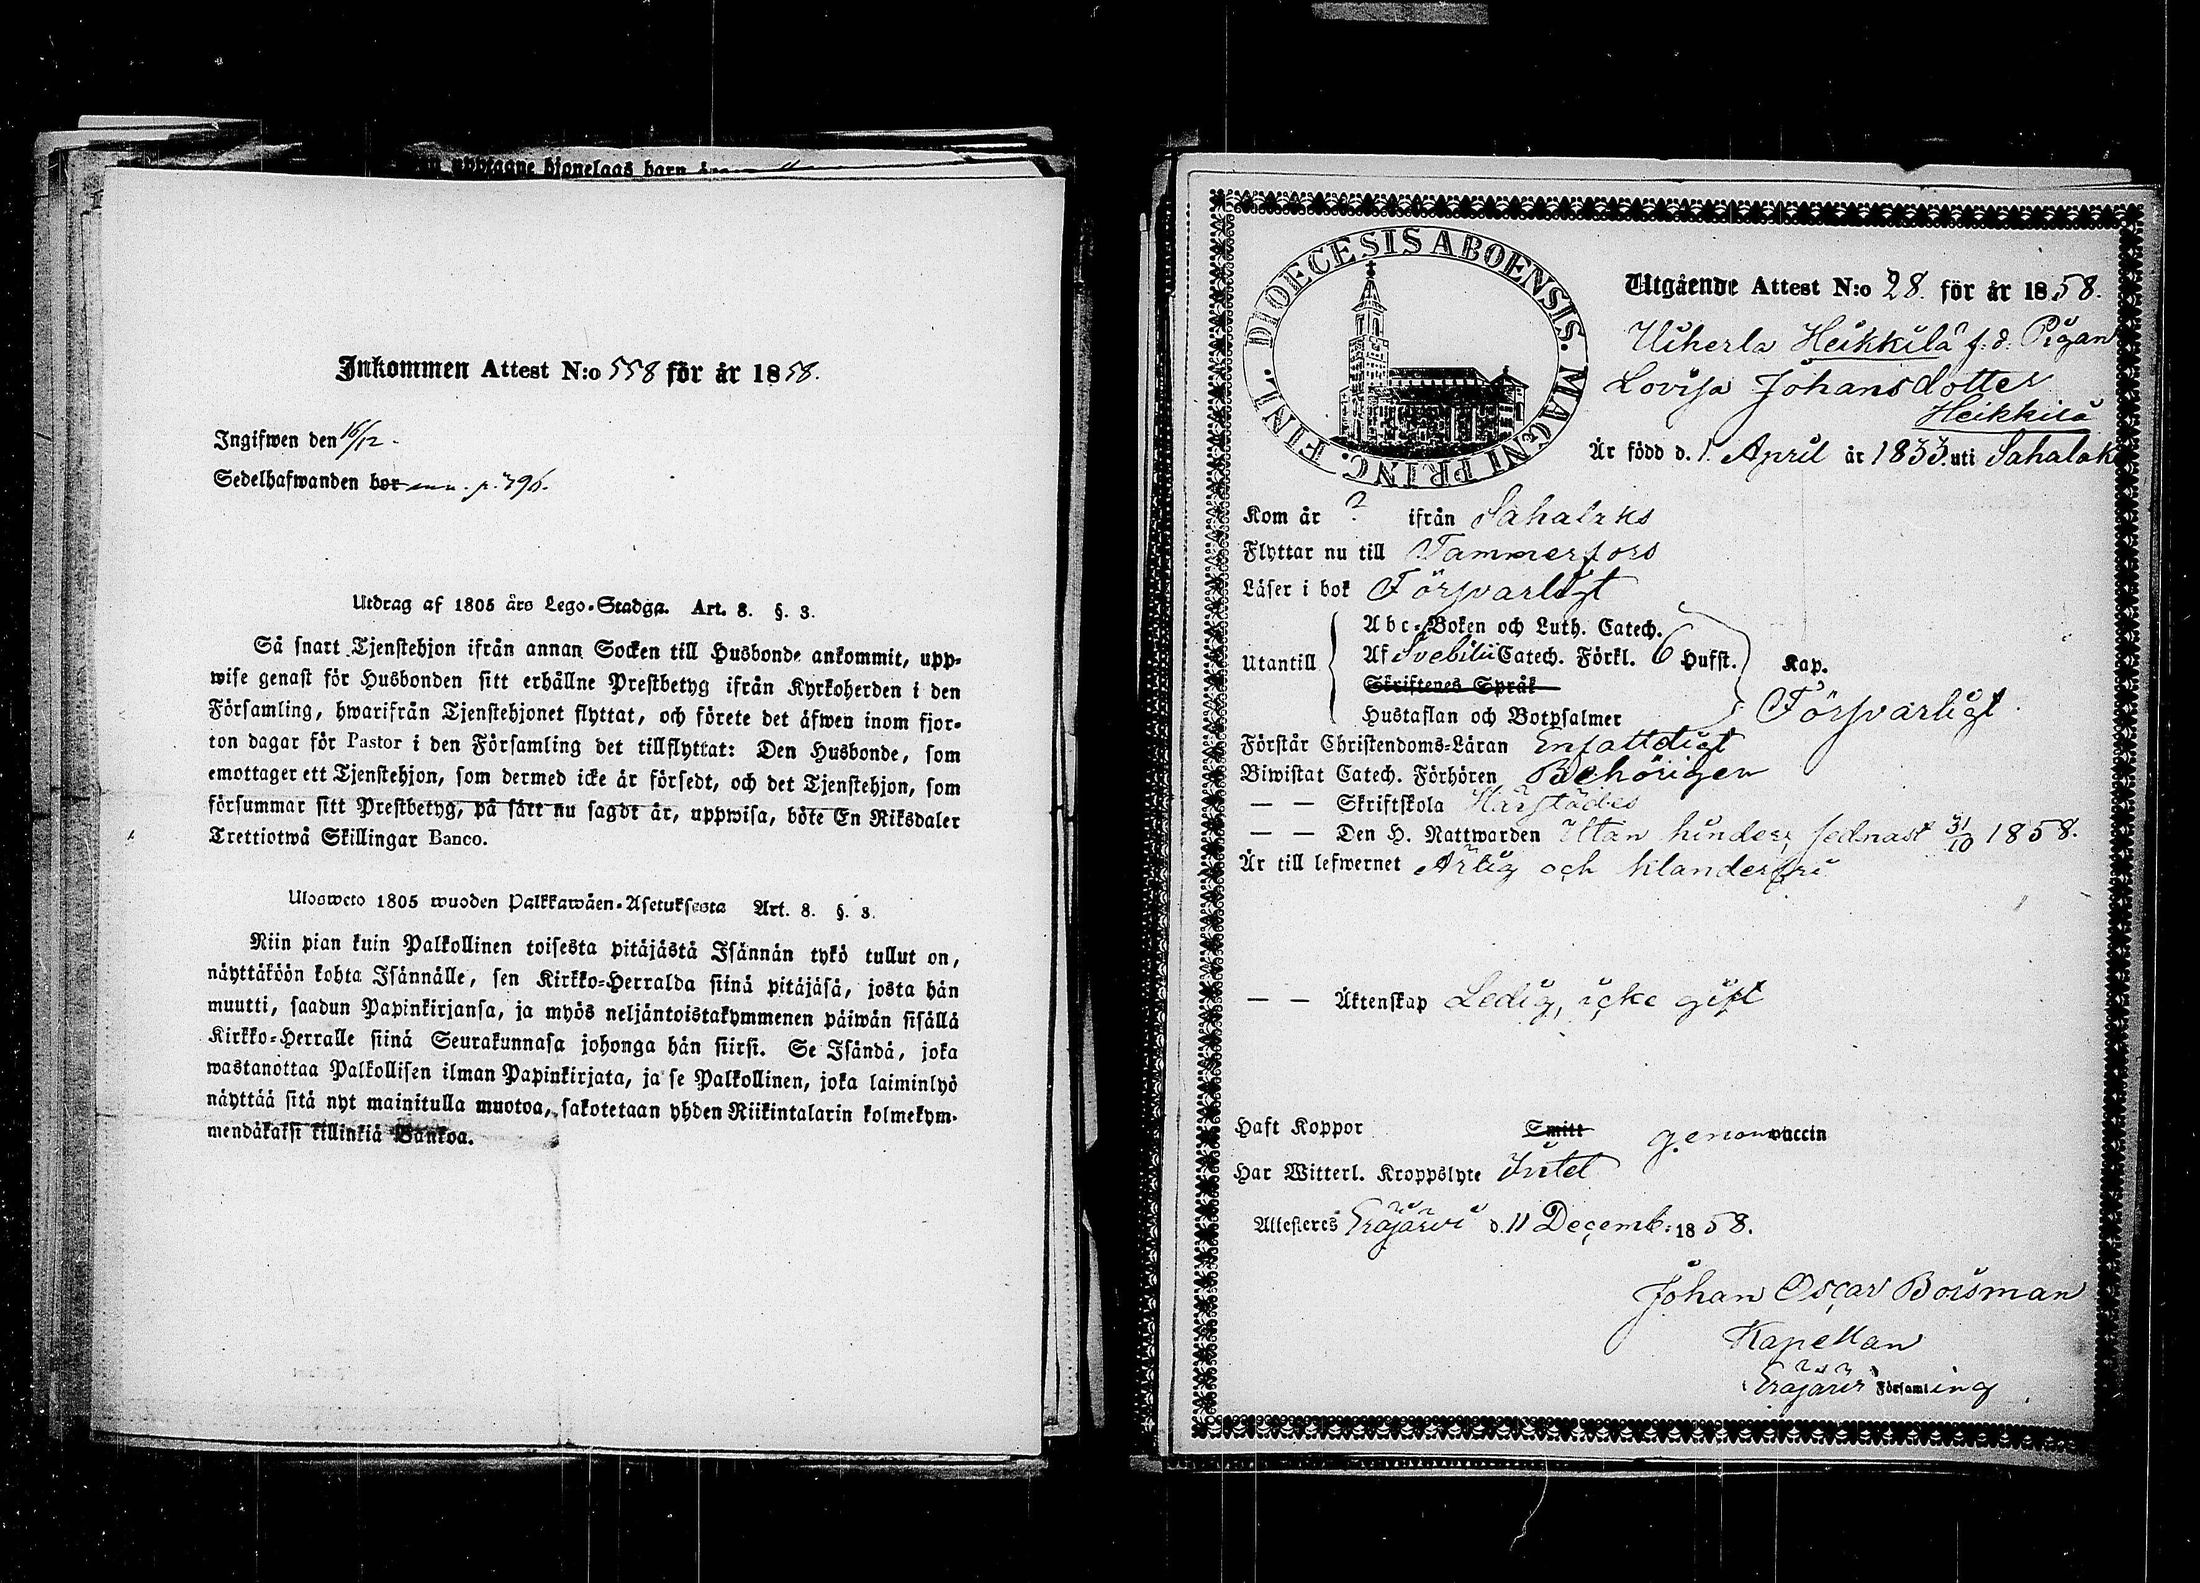 uptagne hionelags barn
Inkommen Attest N:o 558 för år 1858.
Ingifwen den 16/12.
Sedelhafwanden bor ann. p. 396.
Utdrag af 1805 års Lego-Stadga. Art. 8. §. 3.
Så snart Tjenstehjon ifrån annan Socken till Husbonde ankommit, upp-
wise genast för Husbonden sitt erhållne Prestbetyg ifrån Kyrkoherden i den
Församling, hwarifrån Tjenstehjonet flyttat, och förete det äfwen inom fjor-
ton dagar för Pastor i den Församling det tillflyttat: Den Husbonde, som
emottager ett Tjenstehjon, som dermed icke är försedt, och det Tjenstehjon, som
försummar sitt Prestbetyg, på sätt nu sagdt är, uppwisa, böte En Riksdaler
Trettiotwå Skillingar Banco.
Ulosweto 1805 wuoden Palkkawäen-Asetuksesta Art. 8. §. 3.
Niin pian kuin Palkollinen toisesta pitäjästä Isännän tykö tullut on,
näyttäköön kohta Isännälle, sen Kirkko-Herralda siinä pitäjäsä, josta hän
muutti, saadun Papinkirjansa, ja myös neljäntoistakymmenen päiwän sisällä
Kirkko-Herralle siinä Seurakunnasa johonga hän siirsi. Se Isändä, joka
wastanottaa Palkollisen ilman Papinkirjata, ja se Palkollinen, joka laiminlyö
näyttää sitä nyt mainitulla muotoa, sakotetaan yhden Riikintalarin kolmekym-
mendäkaksi killinkiä Bankoa.
DIOECESIS ABOENSIS. MAGNI PRINC. FINL.
Utgående Attest N:o 28. för år 1858.
Uiherla Heikkilä f. d. Pigan
Lovisa Johansdotter
Heikkilä
Är född d. 1. April år 1833. uti Sahalak
Kom år ? ifrån Sahalaks
Flyttar nu till Tammerfors
Läser i bok Försvarligt
Abc-Boken och Luth. Catech.
Utantill Af Svebilii Catech. Förkl. 6 Hufst. Kap.
Skriftenes Språk
Försvarligt.
Hustaflan och Botpsalmer
Förstår Christendoms-Läran Enfalldigt
Biwistat Catech. Förhören Behörigen
— — Skriftskola Härstädes
— — Den H. Nattwarden Utan hinder, sednast 31/10 1858.
Är till lefwernet Ärlig och klanderfri
— — Äktenskap Ledig, icke gift
Haft Koppor Smitt genom vaccin
Har Witterl. Kroppslyte Intet
Attesteres Eräjärvi d. 11 Decemb. 1858.
Johan Oscar Boisman
Kapellan
Eräjärvi Församling